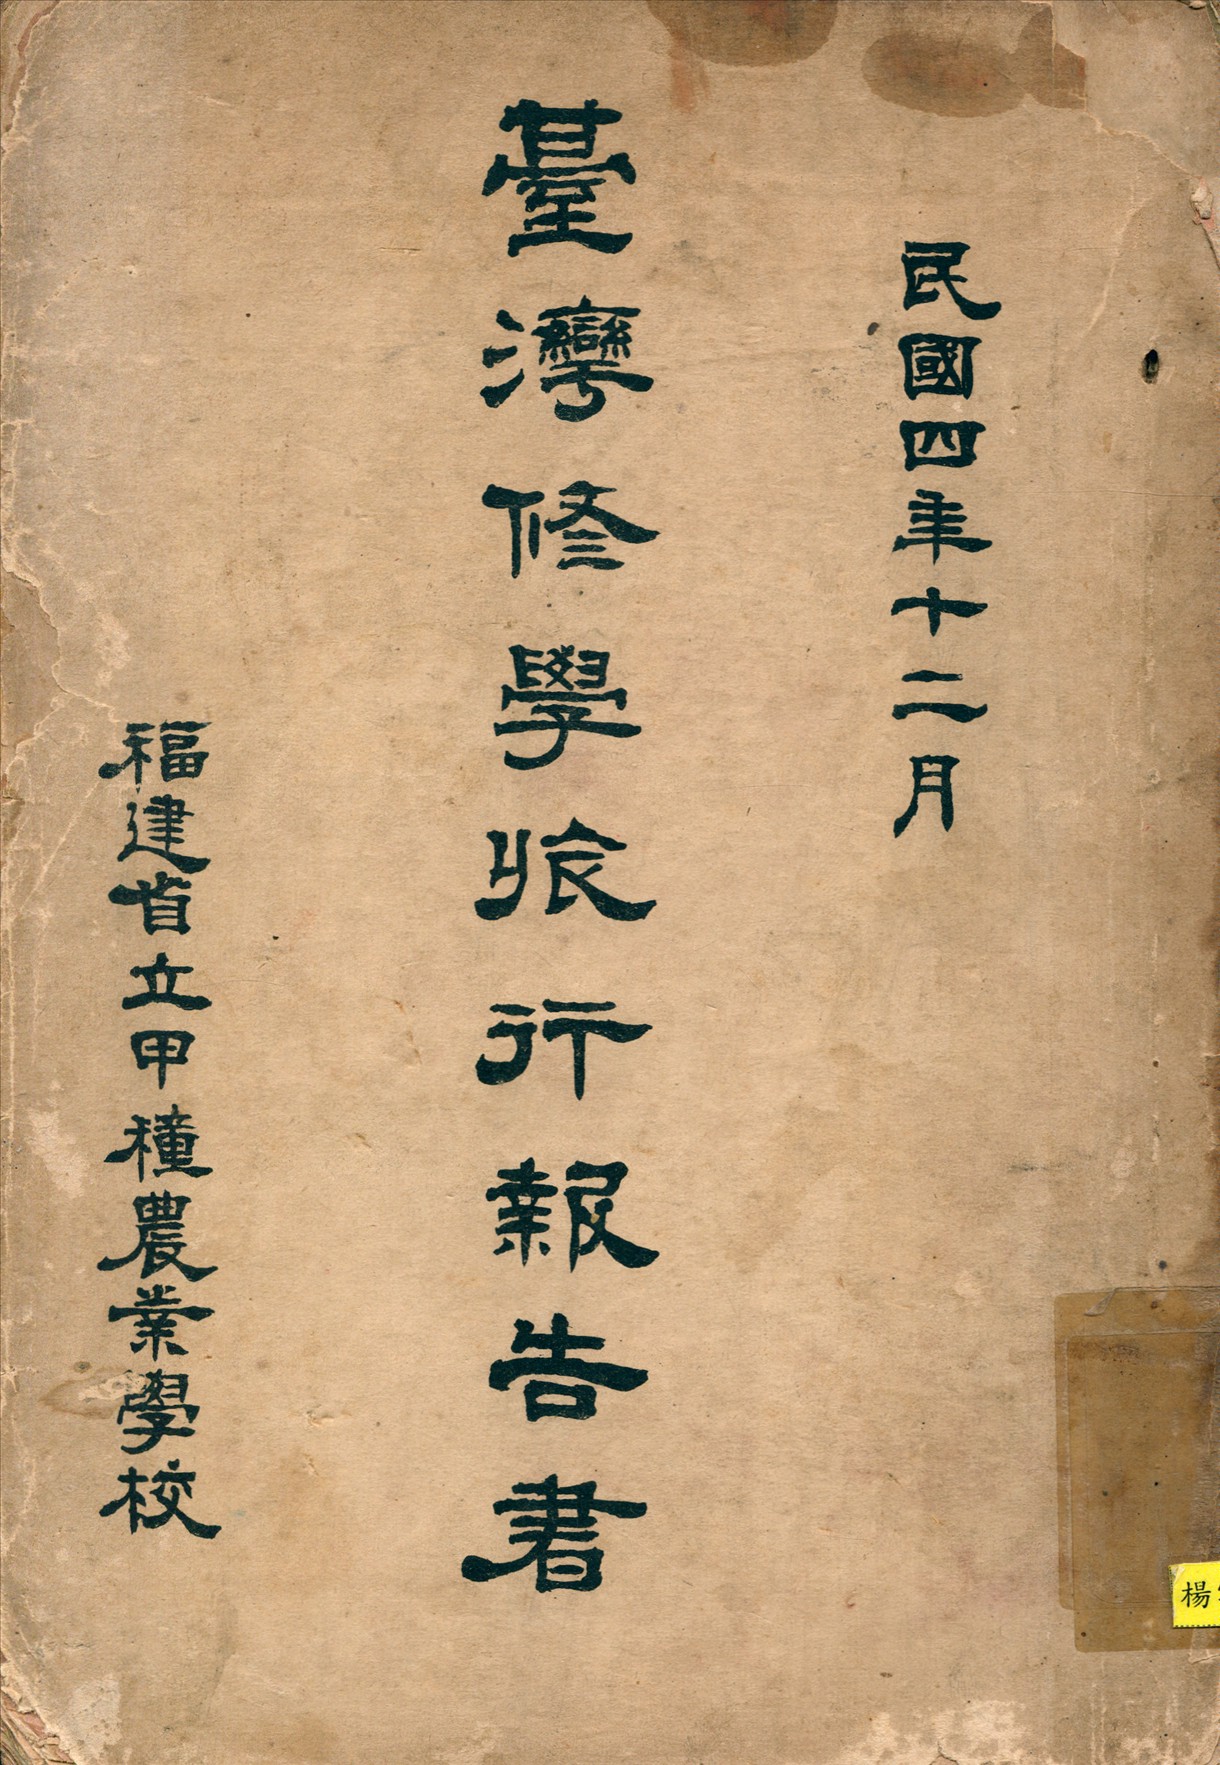 民國四年十二月
臺灣修學旅行報告書
福建省立甲種農業學校
楊